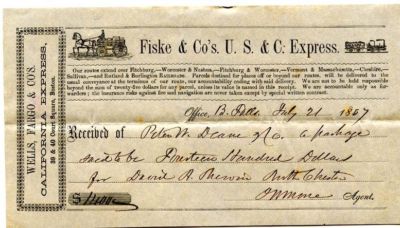 WELLS, FARGO & CO'S.
CALIFORNIA EXPRESS,
39 & 40 Court Square, Boston.
Fiske & Co's. U. S. & C. Express.
Our routes extend over Fitchburg,—Worcester & Nashua,—Fitchburg & Worcester,—Vermont & Massachusetts,—Cheshire,
Sullivan,—and Rutland & Burlington RAILROADS. Parcels destined for places off or beyond our routes, will be delivered to the
usual conveyance at the terminus of our route, our accountability ceasing with said delivery. We are not to be held responsible
beyond the sum of twenty-five dollars for any parcel, unless its value is named in this receipt. We are accountable only as for-
warders; the insurance risks against fire and navigation are never taken except by special written contract.
Office, B. Falls. July 21 1857
Received of Peter W. Deane & Co. a package
said to be Fourteen Hundred Dollars
for David A. North Chester
$ 1400 Agent.